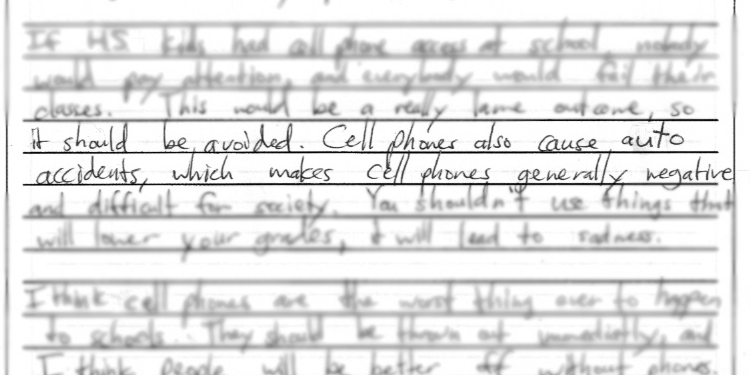 If HS kids had cell phone access at school, nobody
would pay attention, and everybody would fail their
classes. This would be a really lame outcome, so
it should be avoided. Cell phones also cause auto
accidents, which makes cell phones generally negative
and difficult for society. You shouldn't use things that
will lower your grades, it will lead to sadness.
I think cell phones are the worst thing ever to happen
to schools. They should be thrown out immediatly, and
I think people will be better off without phones.